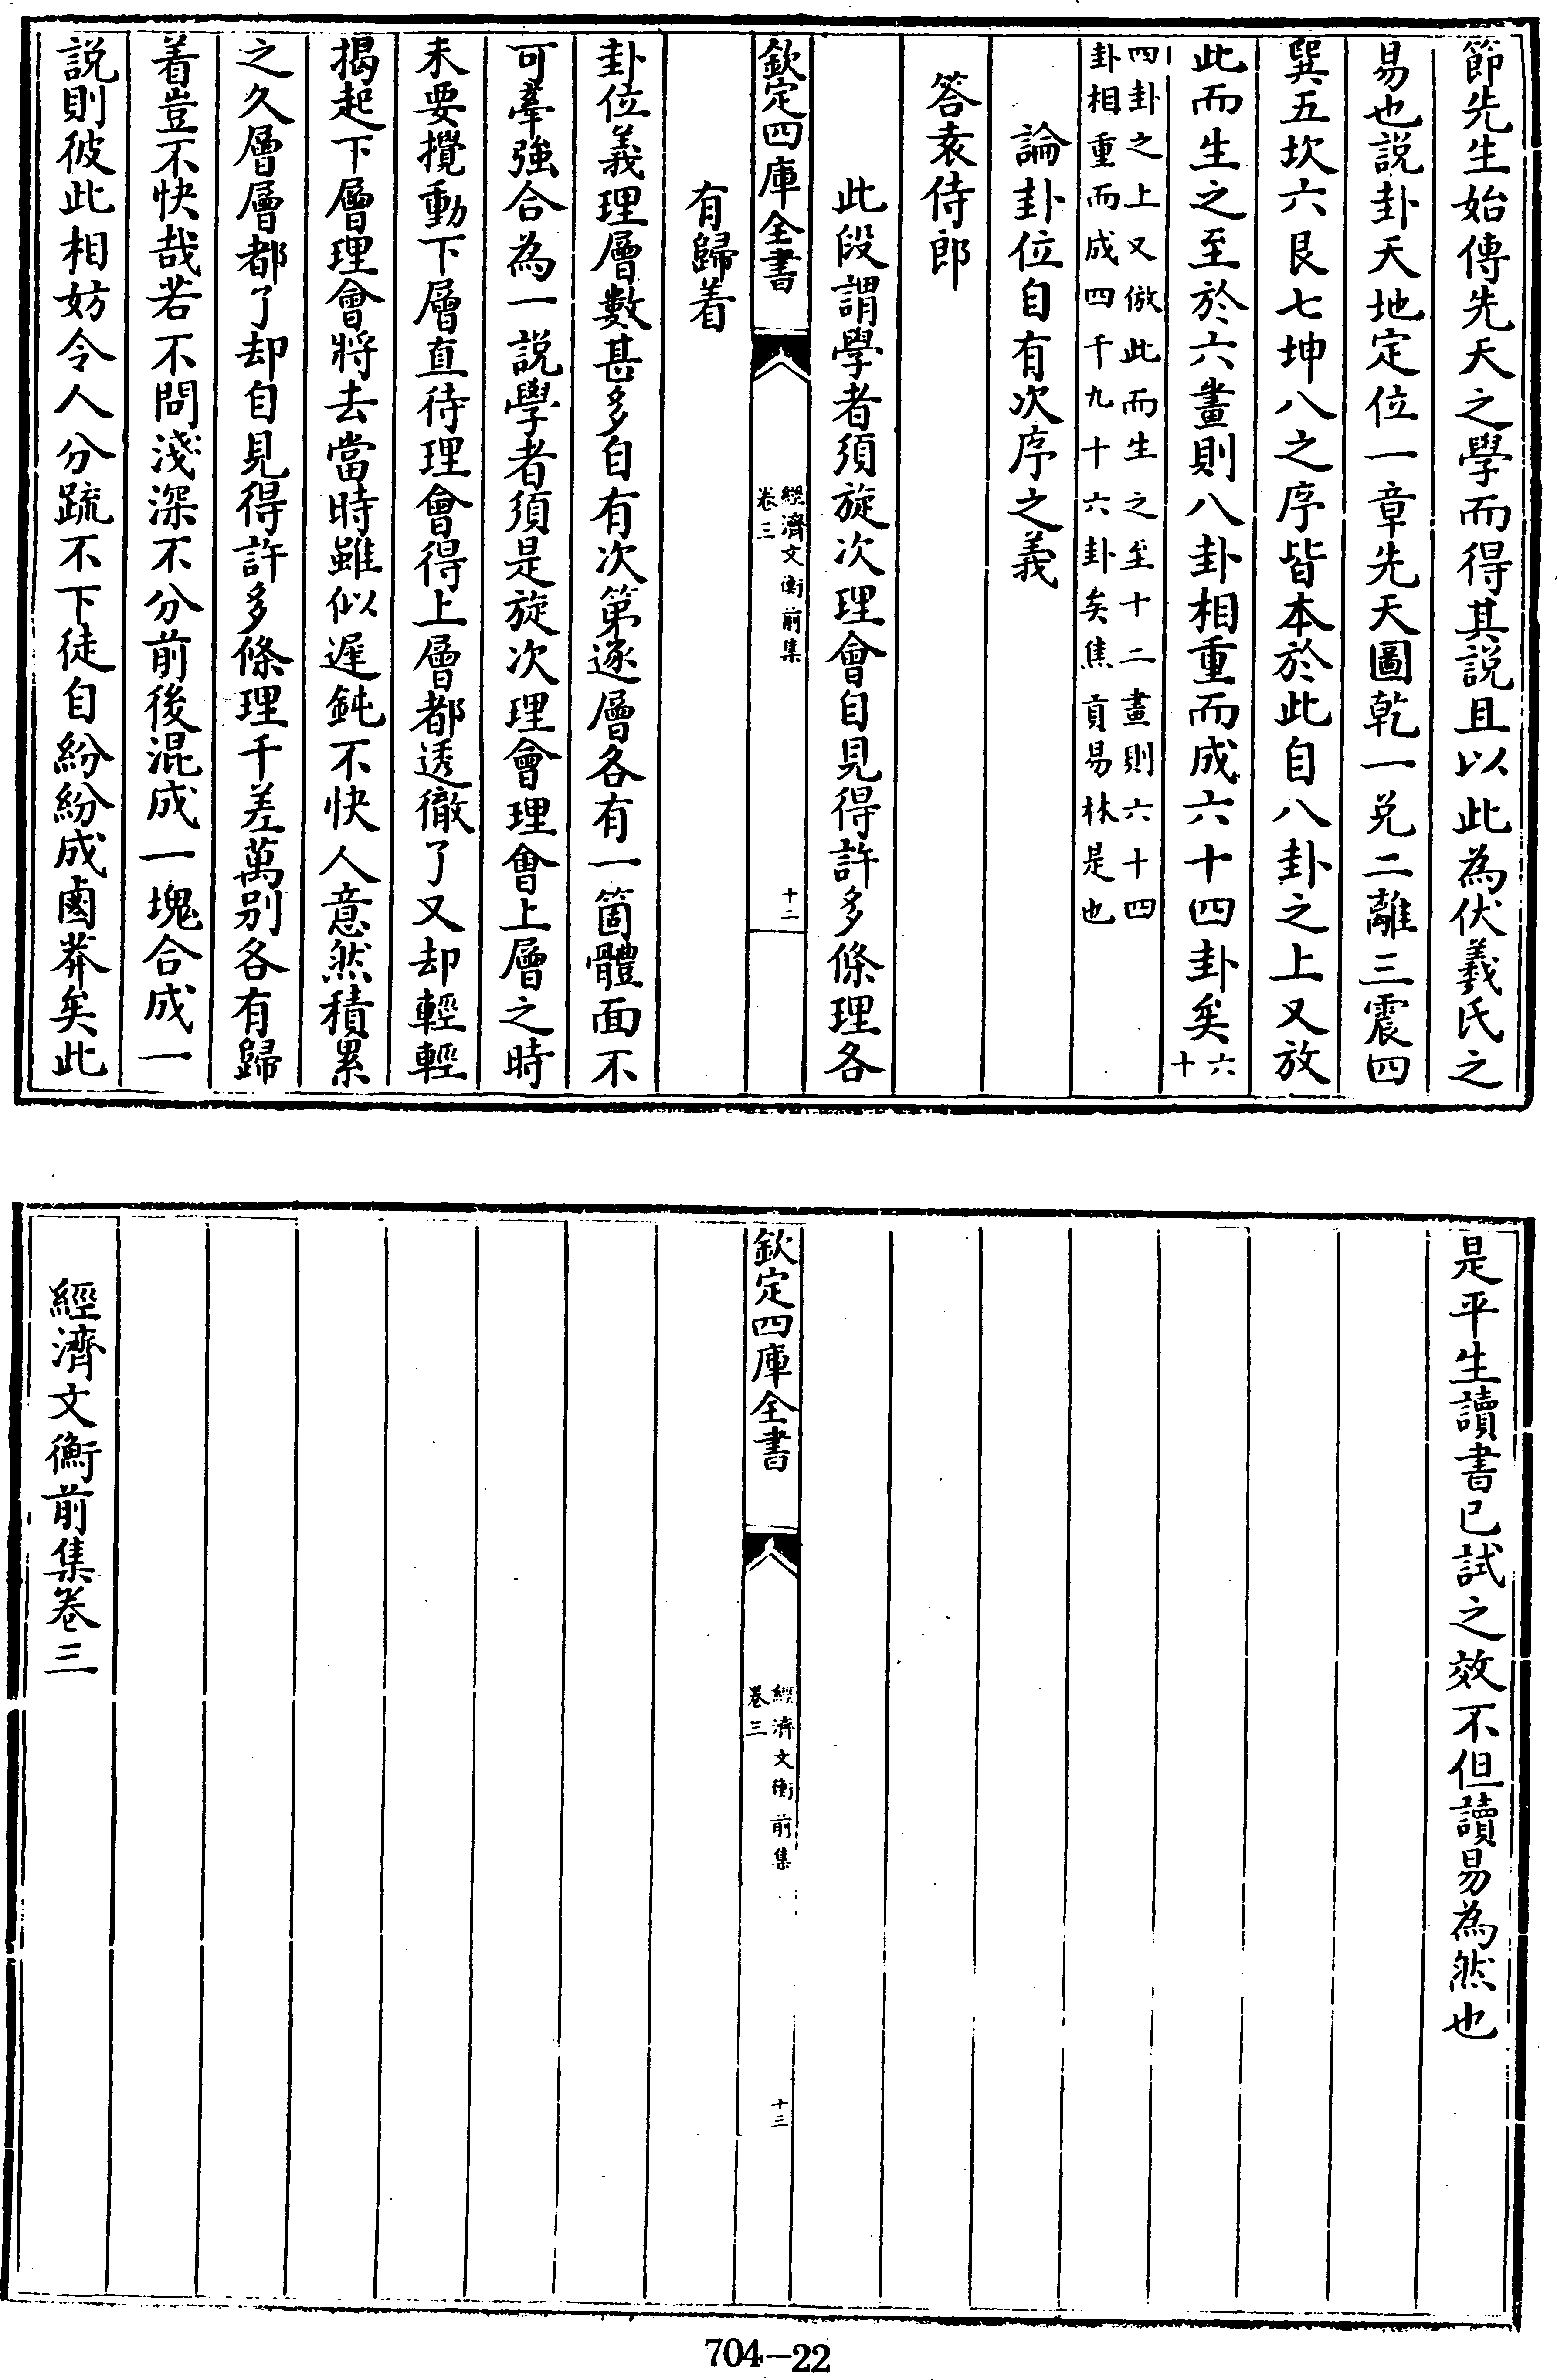 節先生始傳先天之學而得其説且以此為伏羲氏之
易也説卦天地定位一章先天圖乾一兑二離三震四
巽五坎六艮七坤八之序皆本於此自八卦之上又放
此而生之至於六畫則八卦相重而成六十四卦矣六十
四卦之上又倣此而生之至十二畫則六十四
卦相重而成四千九十六卦矣焦貢易林是也
論卦位自有次序之義
答袁侍郎
此段謂學者須旋次理會自見得許多條理各
欽定四庫全書
經濟文衡前集
卷三
十二
有歸着
卦位義理層數甚多自有次第逐層各有一箇體面不
可牽強合為一説學者須是旋次理會理會上層之時
未要攪動下層直待理會得上層都透徹了又却輕輕
揭起下層理會將去當時雖似遲鈍不快人意然積累
之久層層都了却自見得許多條理千差萬别各有歸
着豈不快哉若不問淺深不分前後混成一塊合成一
説則彼此相妨令人分疏不下徒自紛紛成鹵莽矣此
是平生讀書已試之效不但讀易為然也
欽定四庫全書
經濟文衡前集
卷三
十三
經濟文衡前集卷三
704-22